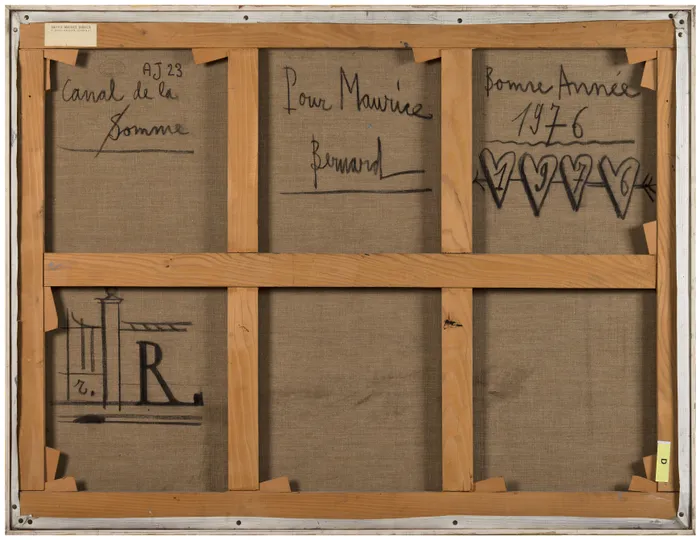 AJ 23
Canal de la
Somme
Pour Maurice
Bernard
Bonne Année
1976
1 9 7 6
r. R.
D